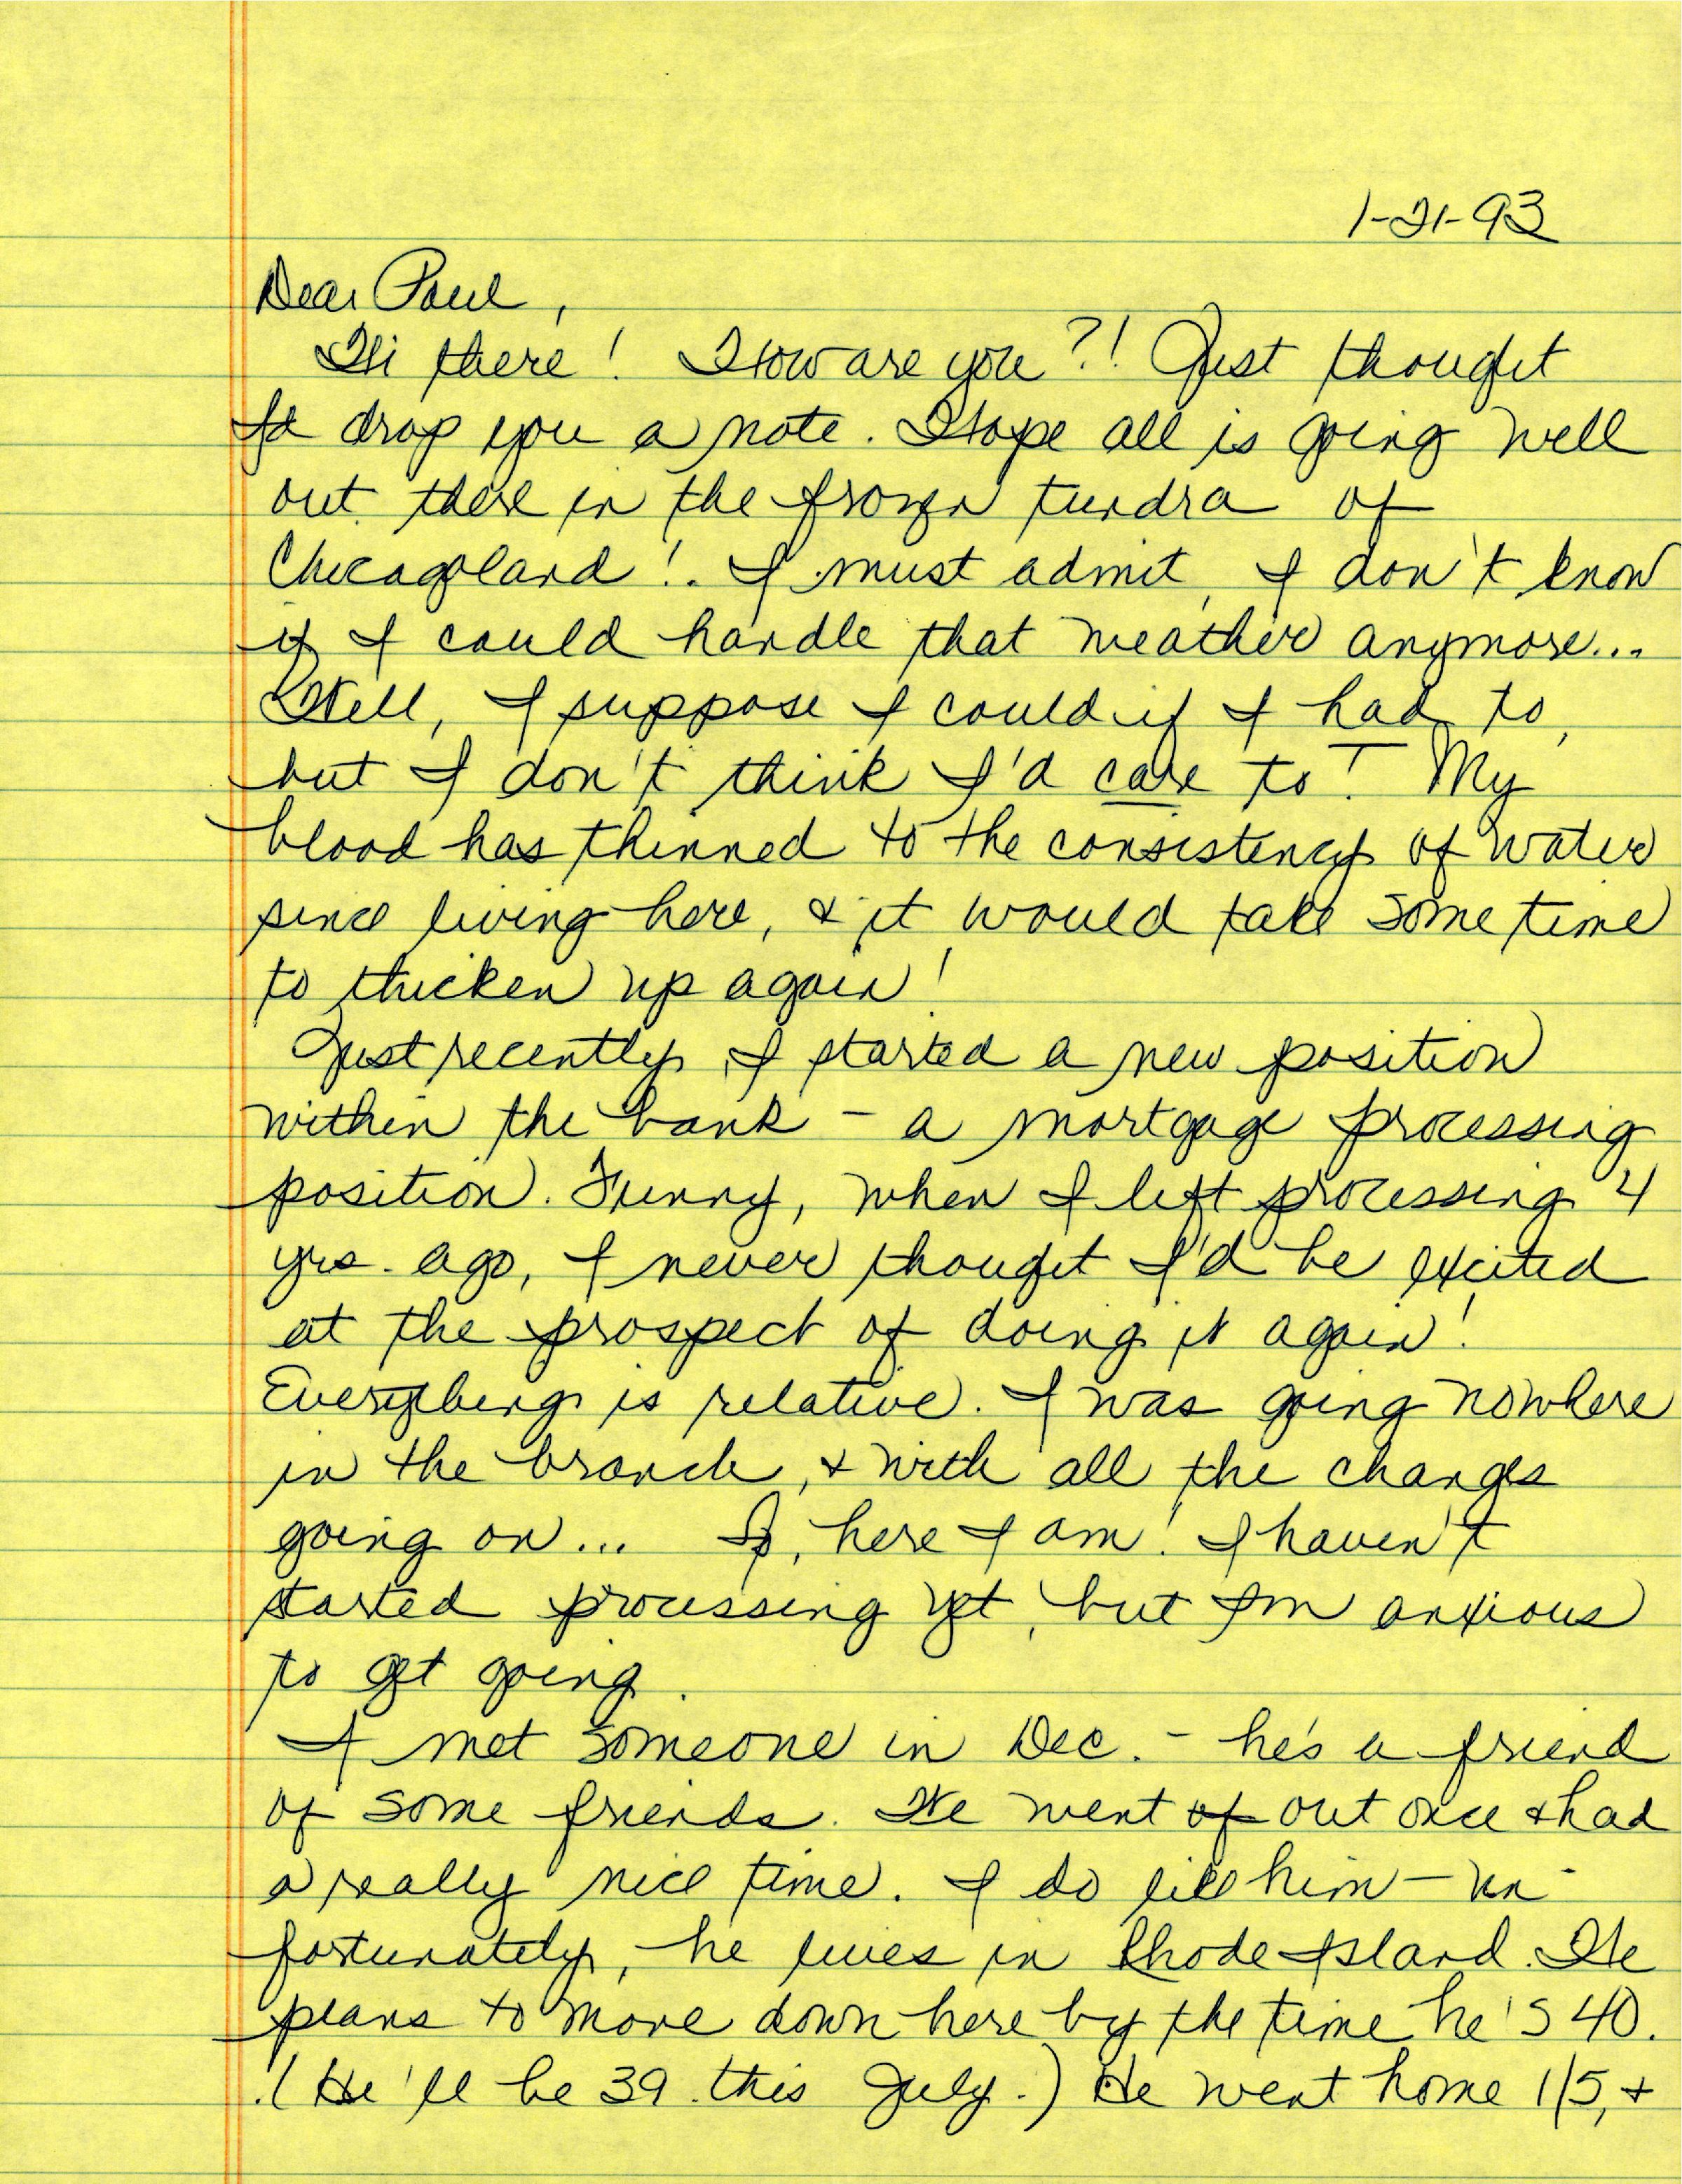 1-21-93
Dear Paul,
Hi there! How are you?! Just thought
I'd drop you a note. Hope all is going well
out there in the frozen tundra of
Chicagoland! I must admit, I don't know
if I could handle that weather anymore...
Well, I suppose I could if I had to,
but I don't think I'd care to! My
blood has thinned to the consistency of water
since living here, & it would take some time
to thicken up again!
Just recently, I started a new position
within the bank - a mortgage processing
position. Funny, when I left processing 4
yrs. ago, I never thought I'd be excited
at the prospect of doing it again!
Everything is relative. I was going nowhere
in the branch, & with all the changes
going on... So, here I am! I haven't
started processing yet, but I'm anxious
to get going.
I met someone in Dec. - he's a friend
of some friends. We went of out once & had
a really nice time. I do like him - un-
fortunately, he lives in Rhode Island. He
plans to move down here by the time he's 40.
(He'll be 39 this July.) He went home 1/5, &